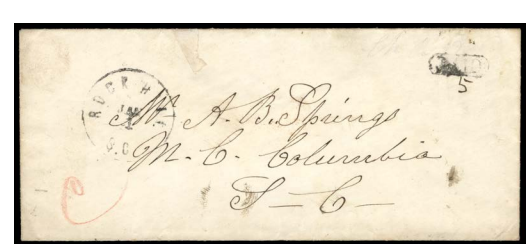 ROCK HILL
JAN
S.C.
PAID
5
Mr A. B. Springs
M. C. Columbia
S - C -